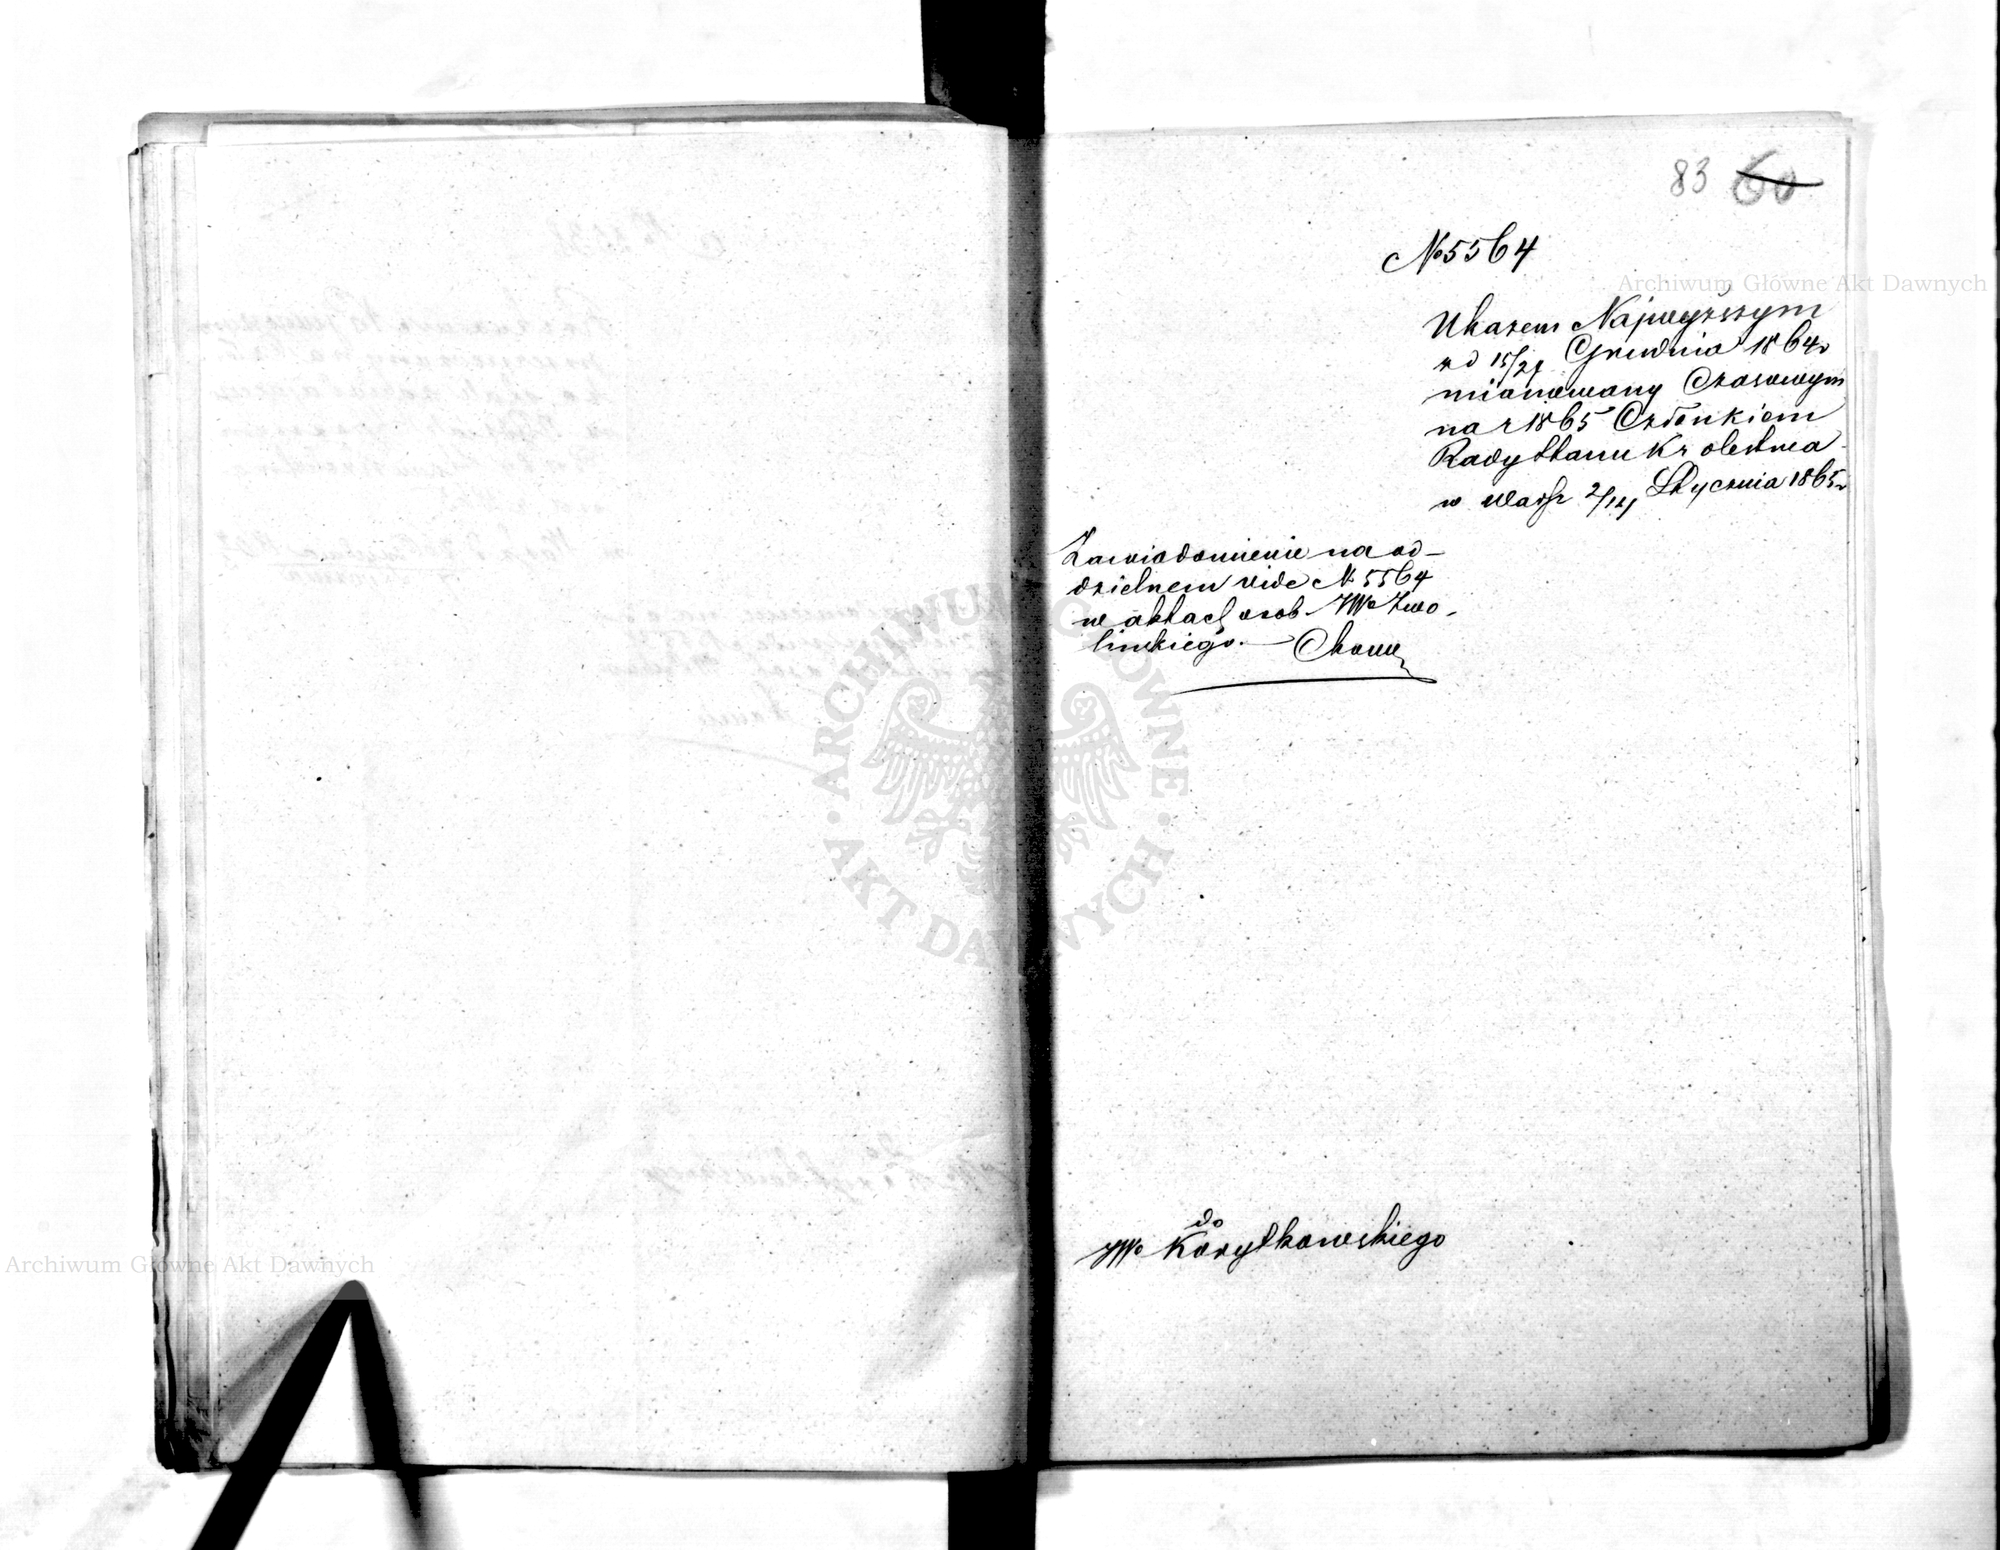 83 60
№ 5564
Ukazem Najwyższym
z d 15/27 Grudnia 1864 r
mianowany Czasowym
na r 1865 Członkiem
Rady Stanu Królestwa
w Warsz 2/14 Stycznia 1865 r
Zawiadomienie na od-
dzielnem vide № 5564
w aktach osob JWo Zwo-
lińskiego. —
do
JWo Korytkowskiego
Archiwum Główne Akt Dawnych
Archiwum Główne Akt Dawnych
ARCHIWUM GŁÓWNE · AKT DAWNYCH ·